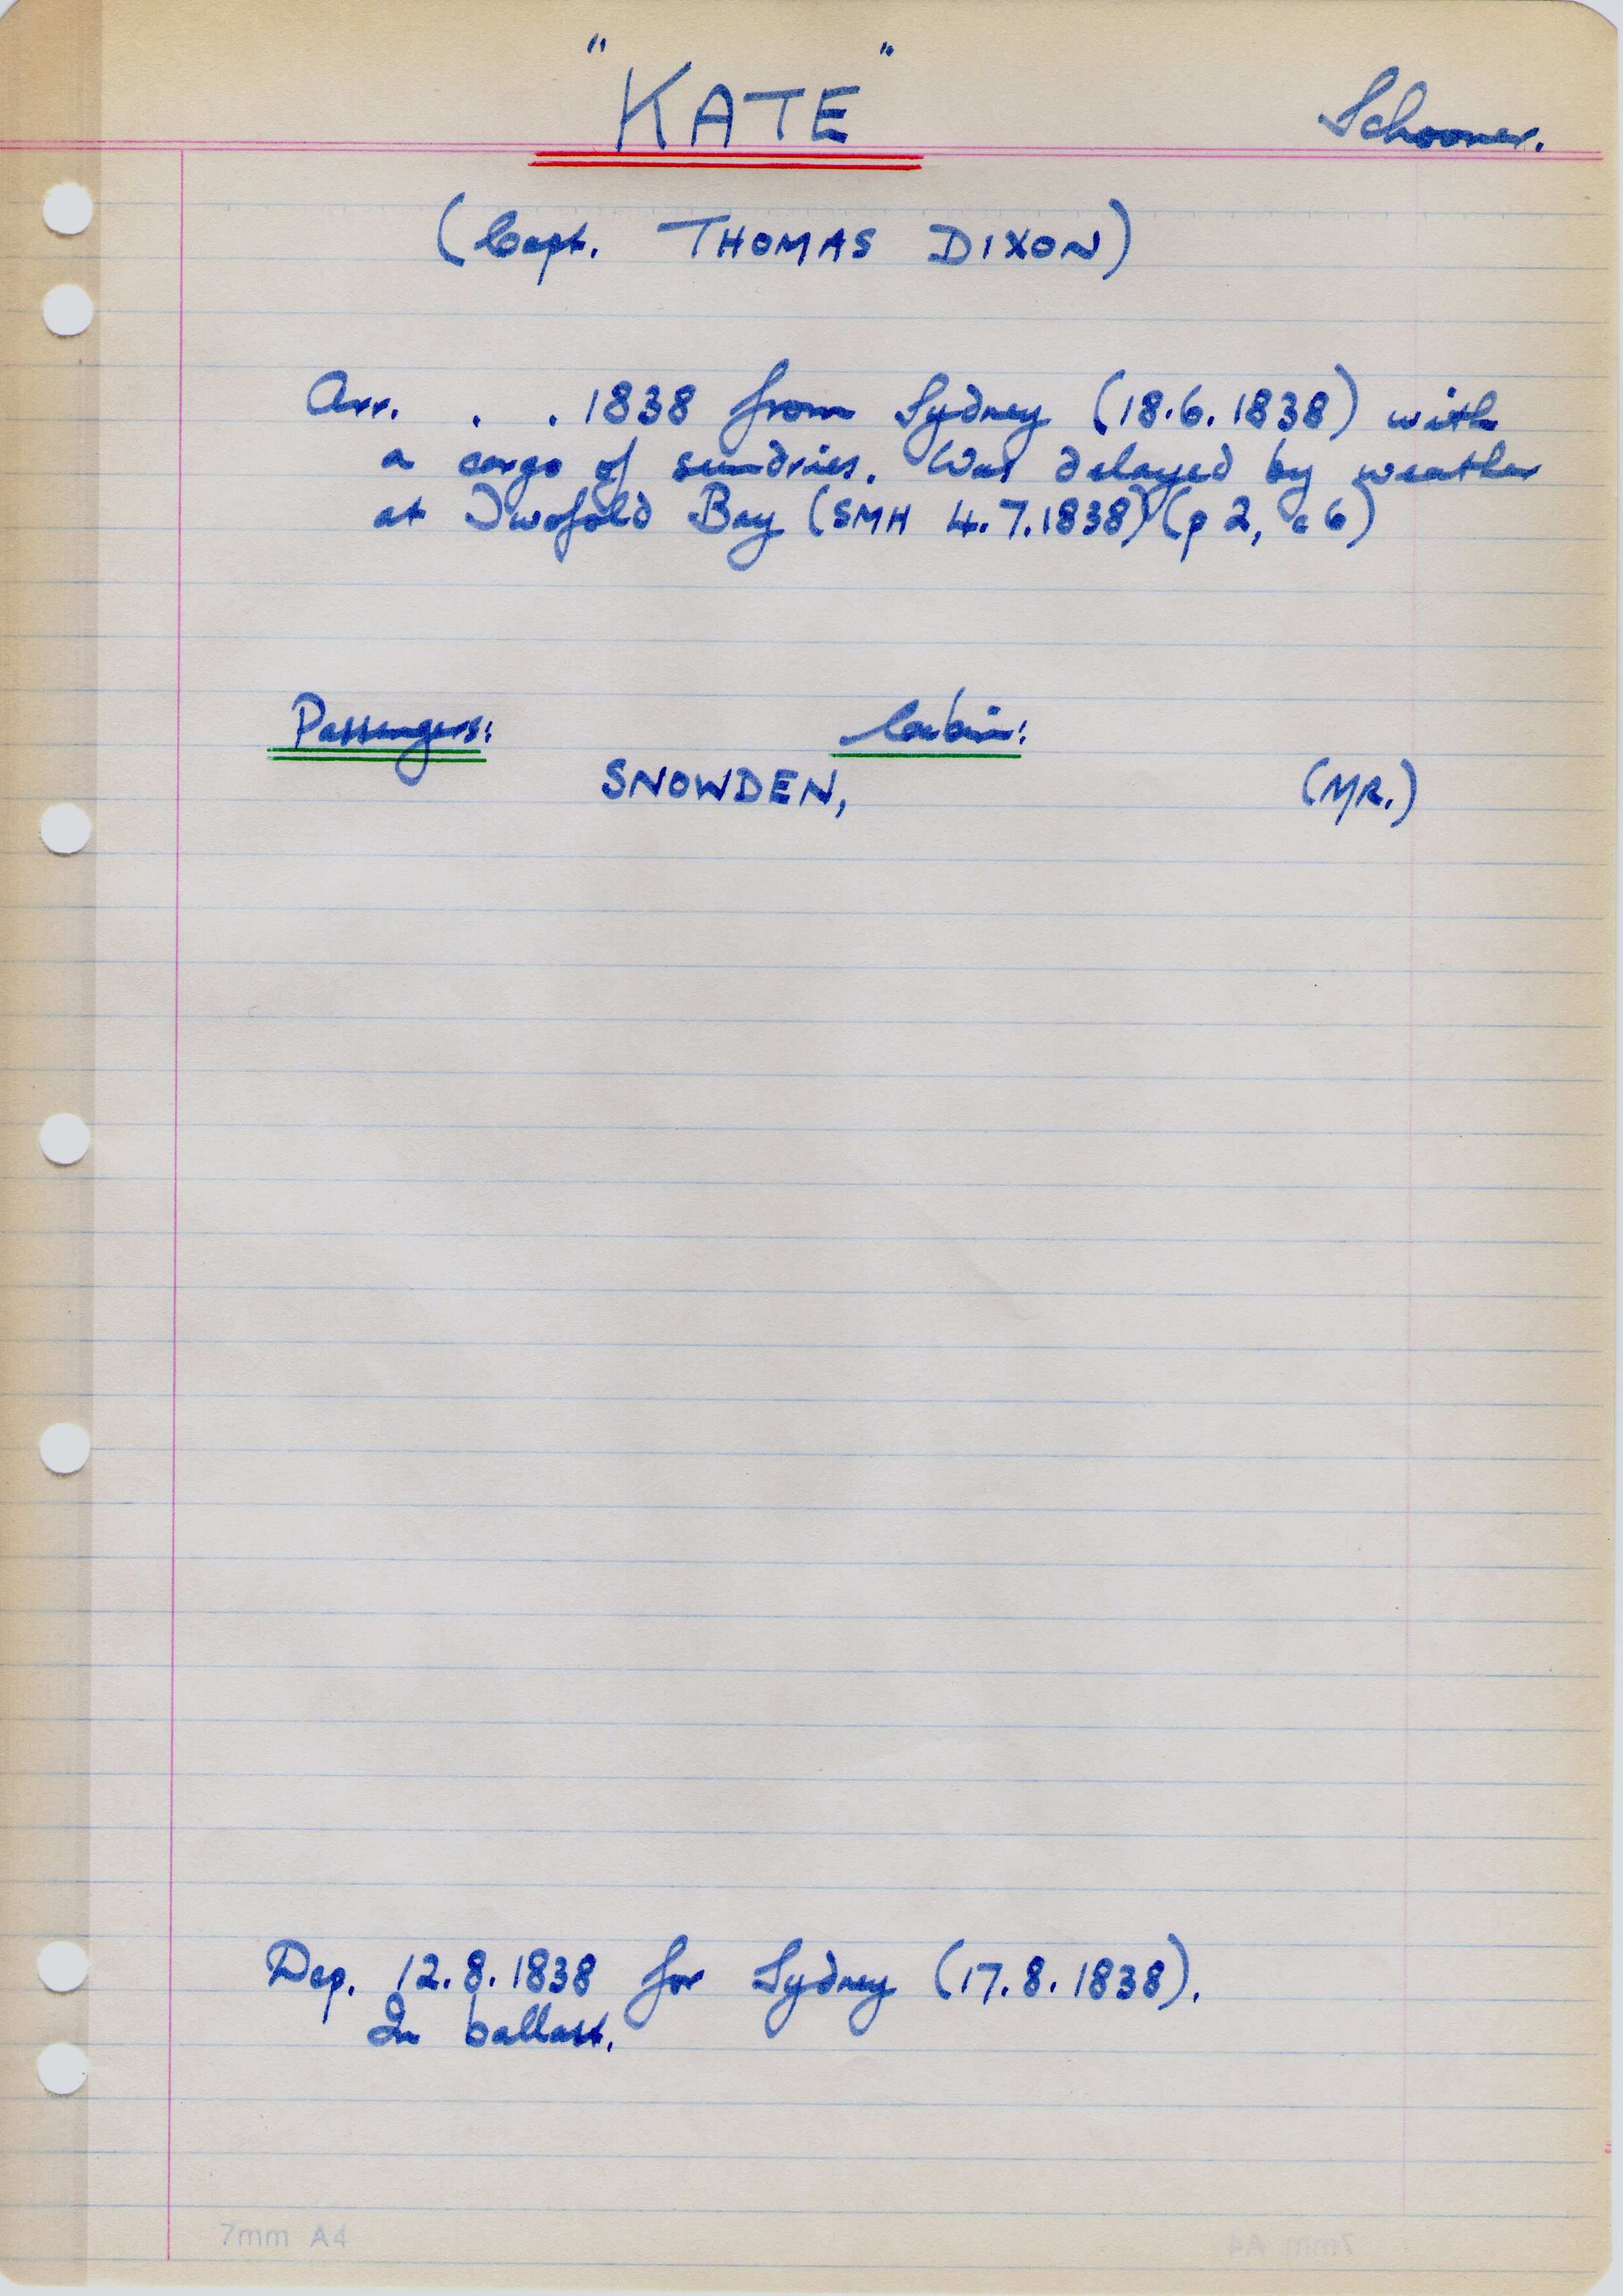 "KATE"
Schooner.
(Capt. THOMAS DIXON)
Arr. . . 1838 from Sydney (18.6.1838) with
a cargo of sundries. Was delayed by weather
at Twofold Bay (SMH 4.7.1838) (p 2, c 6)
Passengers: Cabin:
SNOWDEN, (MR.)
Dep. 12.8.1838 for Sydney (17.8.1838).
In ballast.
7mm A4